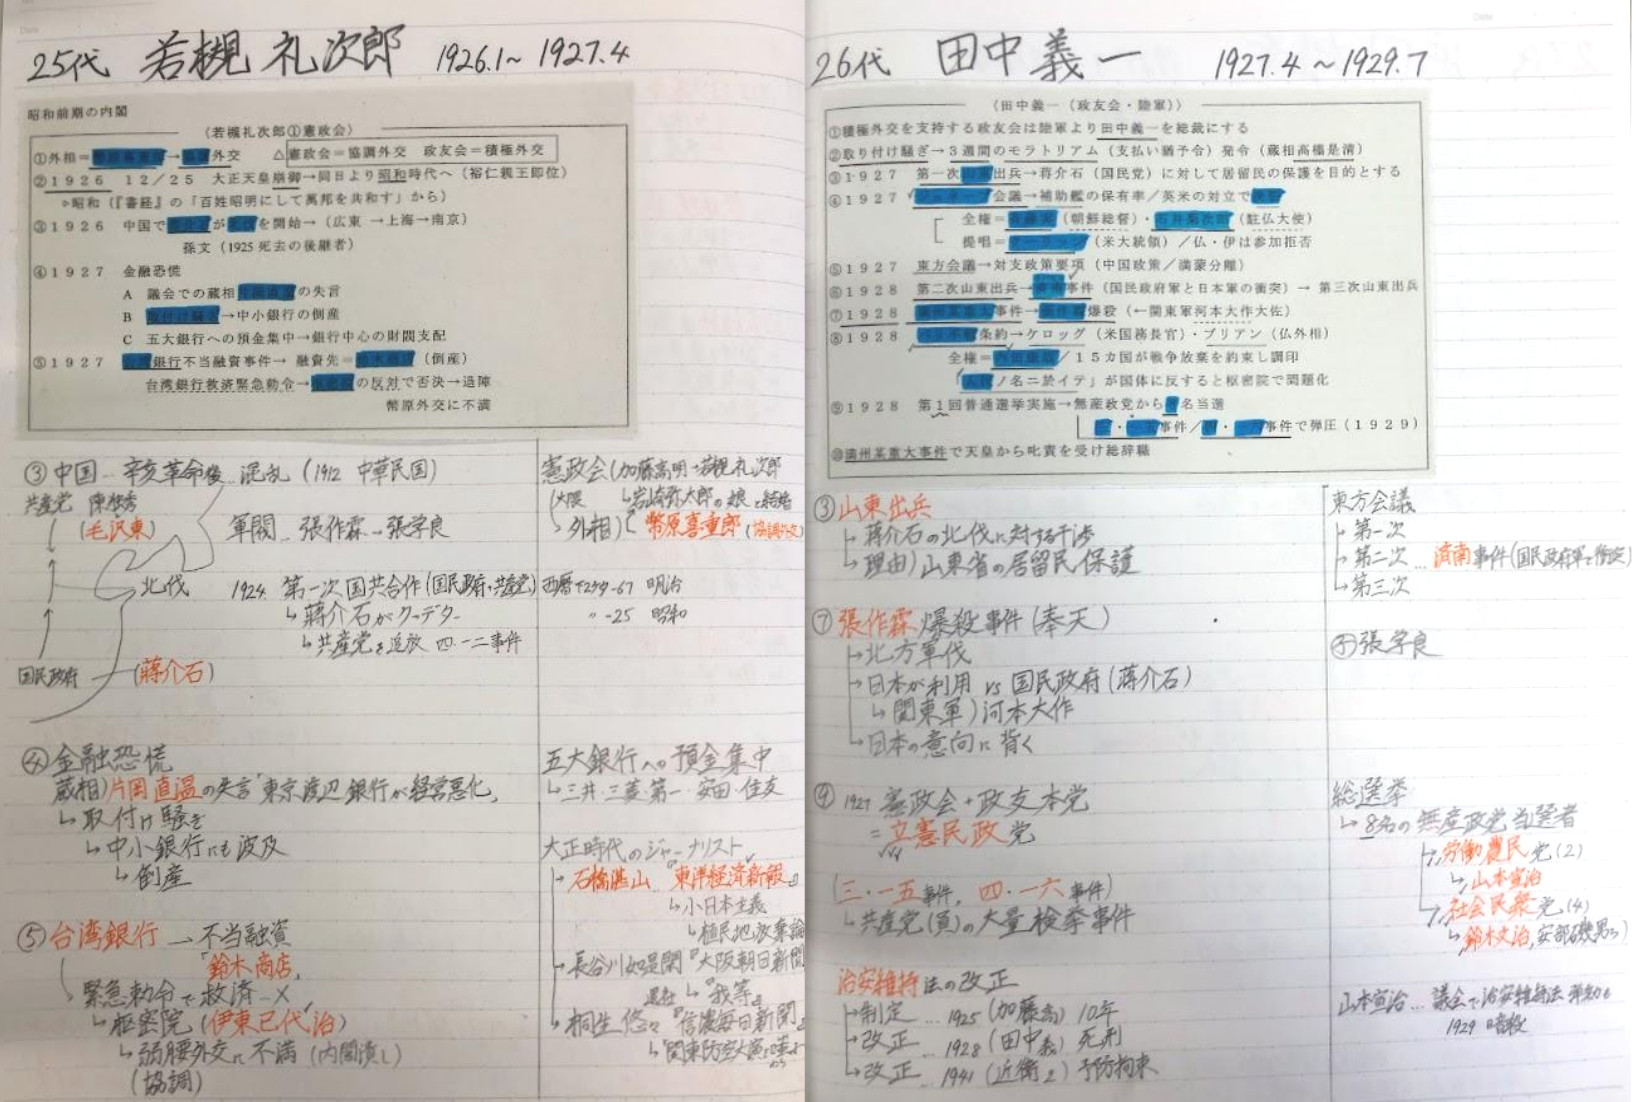 25代 若槻 礼次郎 1926.1~ 1927.4
昭和前期の内閣
(若槻礼次郎①憲政会)
①外相=幣原喜重郎→協調外交 △憲政会=協調外交 政友会=積極外交
②1926 12/25 大正天皇崩御→同日より昭和時代へ(裕仁親王即位)
◦昭和(『書経』の「百姓昭明にして萬邦を共和す」から)
③1926 中国で蔣介石が北伐を開始→(広東→上海→南京)
孫文(1925死去の後継者)
④1927 金融恐慌
A 議会での蔵相片岡直温の失言
B 取付け騒ぎ→中小銀行の倒産
C 五大銀行への預金集中→銀行中心の財閥支配
⑤1927 台湾銀行不当融資事件→ 融資先=鈴木商店(倒産)
台湾銀行救済緊急勅令→枢密院の反対で否決→退陣
幣原外交に不満
③中国…辛亥革命後…混乱(1912 中華民国)
共産党 陳独秀
(毛沢東)
軍閥…張作霖→張学良
北伐
1924. 第一次国共合作(国民政府・共産党)
↳蔣介石がクーデター
↳共産党を追放 四・一二事件
国民政府 (蔣介石)
憲政会(加藤高明→若槻礼次郎
(大隈 ↳岩崎弥太郎の娘と結婚
↳外相)〔幣原喜重郎(協調外交)
西暦下2ケタ-67 明治
〃 -25 昭和
④金融恐慌
蔵相)片岡直温の失言「東京渡辺銀行が経営悪化」
↳取付け騒ぎ
↳中小銀行にも波及
↳倒産
五大銀行への預金集中
↳三井・三菱・第一・安田・住友
大正時代のジャーナリスト
→石橋湛山『東洋経済新報』
↳小日本主義
↳植民地放棄論
→長谷川如是閑『大阪朝日新聞』
退社 ↳『我等』
→桐生悠々『信濃毎日新聞』
↳「関東防空大演習を嗤ふ」
⑤台湾銀行→不当融資
「鈴木商店」
↳緊急勅令で救済…×
↳枢密院(伊東巳代治)
↳弱腰外交に不満(内閣潰し)
(協調)
26代 田中義一 1927.4 ~1929.7
(田中義一(政友会・陸軍))
①積極外交を支持する政友会は陸軍より田中義一を総裁にする
②取り付け騒ぎ→3週間のモラトリアム(支払い猶予令)発令(蔵相高橋是清)
③1927 第一次山東出兵→蒋介石(国民党)に対して居留民の保護を目的とする
④1927 ジュネーブ会議→補助艦の保有率/英米の対立で決裂
全権=斎藤実(朝鮮総督)・石井菊次郎(駐仏大使)
提唱=クーリッジ(米大統領)/仏・伊は参加拒否
⑤1927 東方会議→対支政策要項(中国政策/満蒙分離)
⑥1928 第二次山東出兵→済南事件(国民政府軍と日本軍の衝突)→ 第三次山東出兵
⑦1928 満州某重大事件→張作霖爆殺(←関東軍河本大作大佐)
⑧1928 パリ不戦条約→ケロッグ(米国務長官)・ブリアン(仏外相)
全権=内田康哉/15カ国が戦争放棄を約束し調印
「人民ノ名ニ於イテ」が国体に反すると枢密院で問題化
⑨1928 第1回普通選挙実施→無産政党から8名当選
三・一五事件/四・一六事件で弾圧(1929)
⑩満州某重大事件で天皇から叱責を受け総辞職
③山東出兵
↳蒋介石の北伐に対する干渉
↳理由)山東省の居留民保護
東方会議
→第一次
→第二次…済南事件(国民政府軍と衝突)
↳第三次
⑦張作霖爆殺事件(奉天)
→北方軍伐
→日本が利用 vs 国民政府(蒋介石)
↳関東軍)河本大作
↳日本の意向に背く
㋙張学良
⑨1927 憲政会+政友本党
=立憲民政党
(三・一五事件, 四・一六事件)
↳共産党(員)の大量検挙事件
総選挙
↳8名の無産政党当選者
→労働農民党(2)
↳山本宣治
→社会民衆党(4)
↳鈴木文治,安部磯男ら)
治安維持法の改正
→制定…1925(加藤高)10年
→改正…1928(田中義)死刑
↳改正…1941(近衛2)予防拘束
山本宣治…議会で治安維持法
1929 暗殺